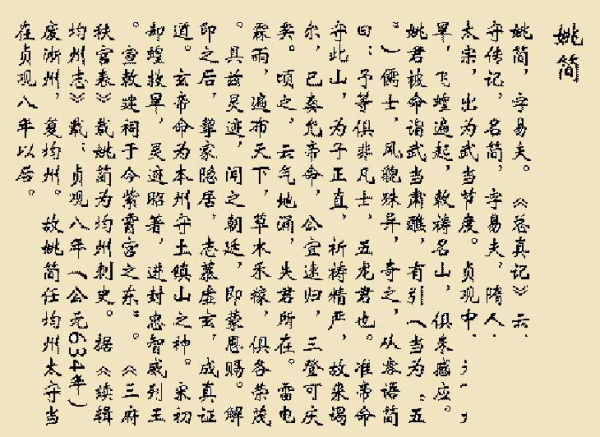 姚简
姚简，字易夫。《总真记》云，
守传记，名简，字易夫，隋人．
太宗，出为武当节度。贞观中．
旱，飞蝗遍起，敕祷名山，俱未感应。
姚君被命诣武当肃醮，有引（当为“五
”）儒士，风貌殊异，奇之，从容语简
曰：予等俱非凡士，五龙君也。准帝命
守此山，为子正直，祈祷情严，故来谒
尔，已奏允帝命，公宜速归，三登可庆
矣。顷之，云气地涌，失君所在。雷电
霖雨，遍布天下，草木禾稼，俱各荣茂
。具兹灵迹，闻之朝廷，即蒙恩赐。解
印之后，挈家隐居，志慕虚玄，成真证
道。玄帝命为本州守土镇山之神。宋初
却蝗救旱，灵迹昭著，进封忠智威烈王
。宣敕建祠于今紫霄宫之东”。《三府
秩官表》载姚简为均州刺史。据《续辑
均州志》载，贞观八年（公元634年）
废淅州，复均州。故姚简任均州太守当
在贞观八年以后。